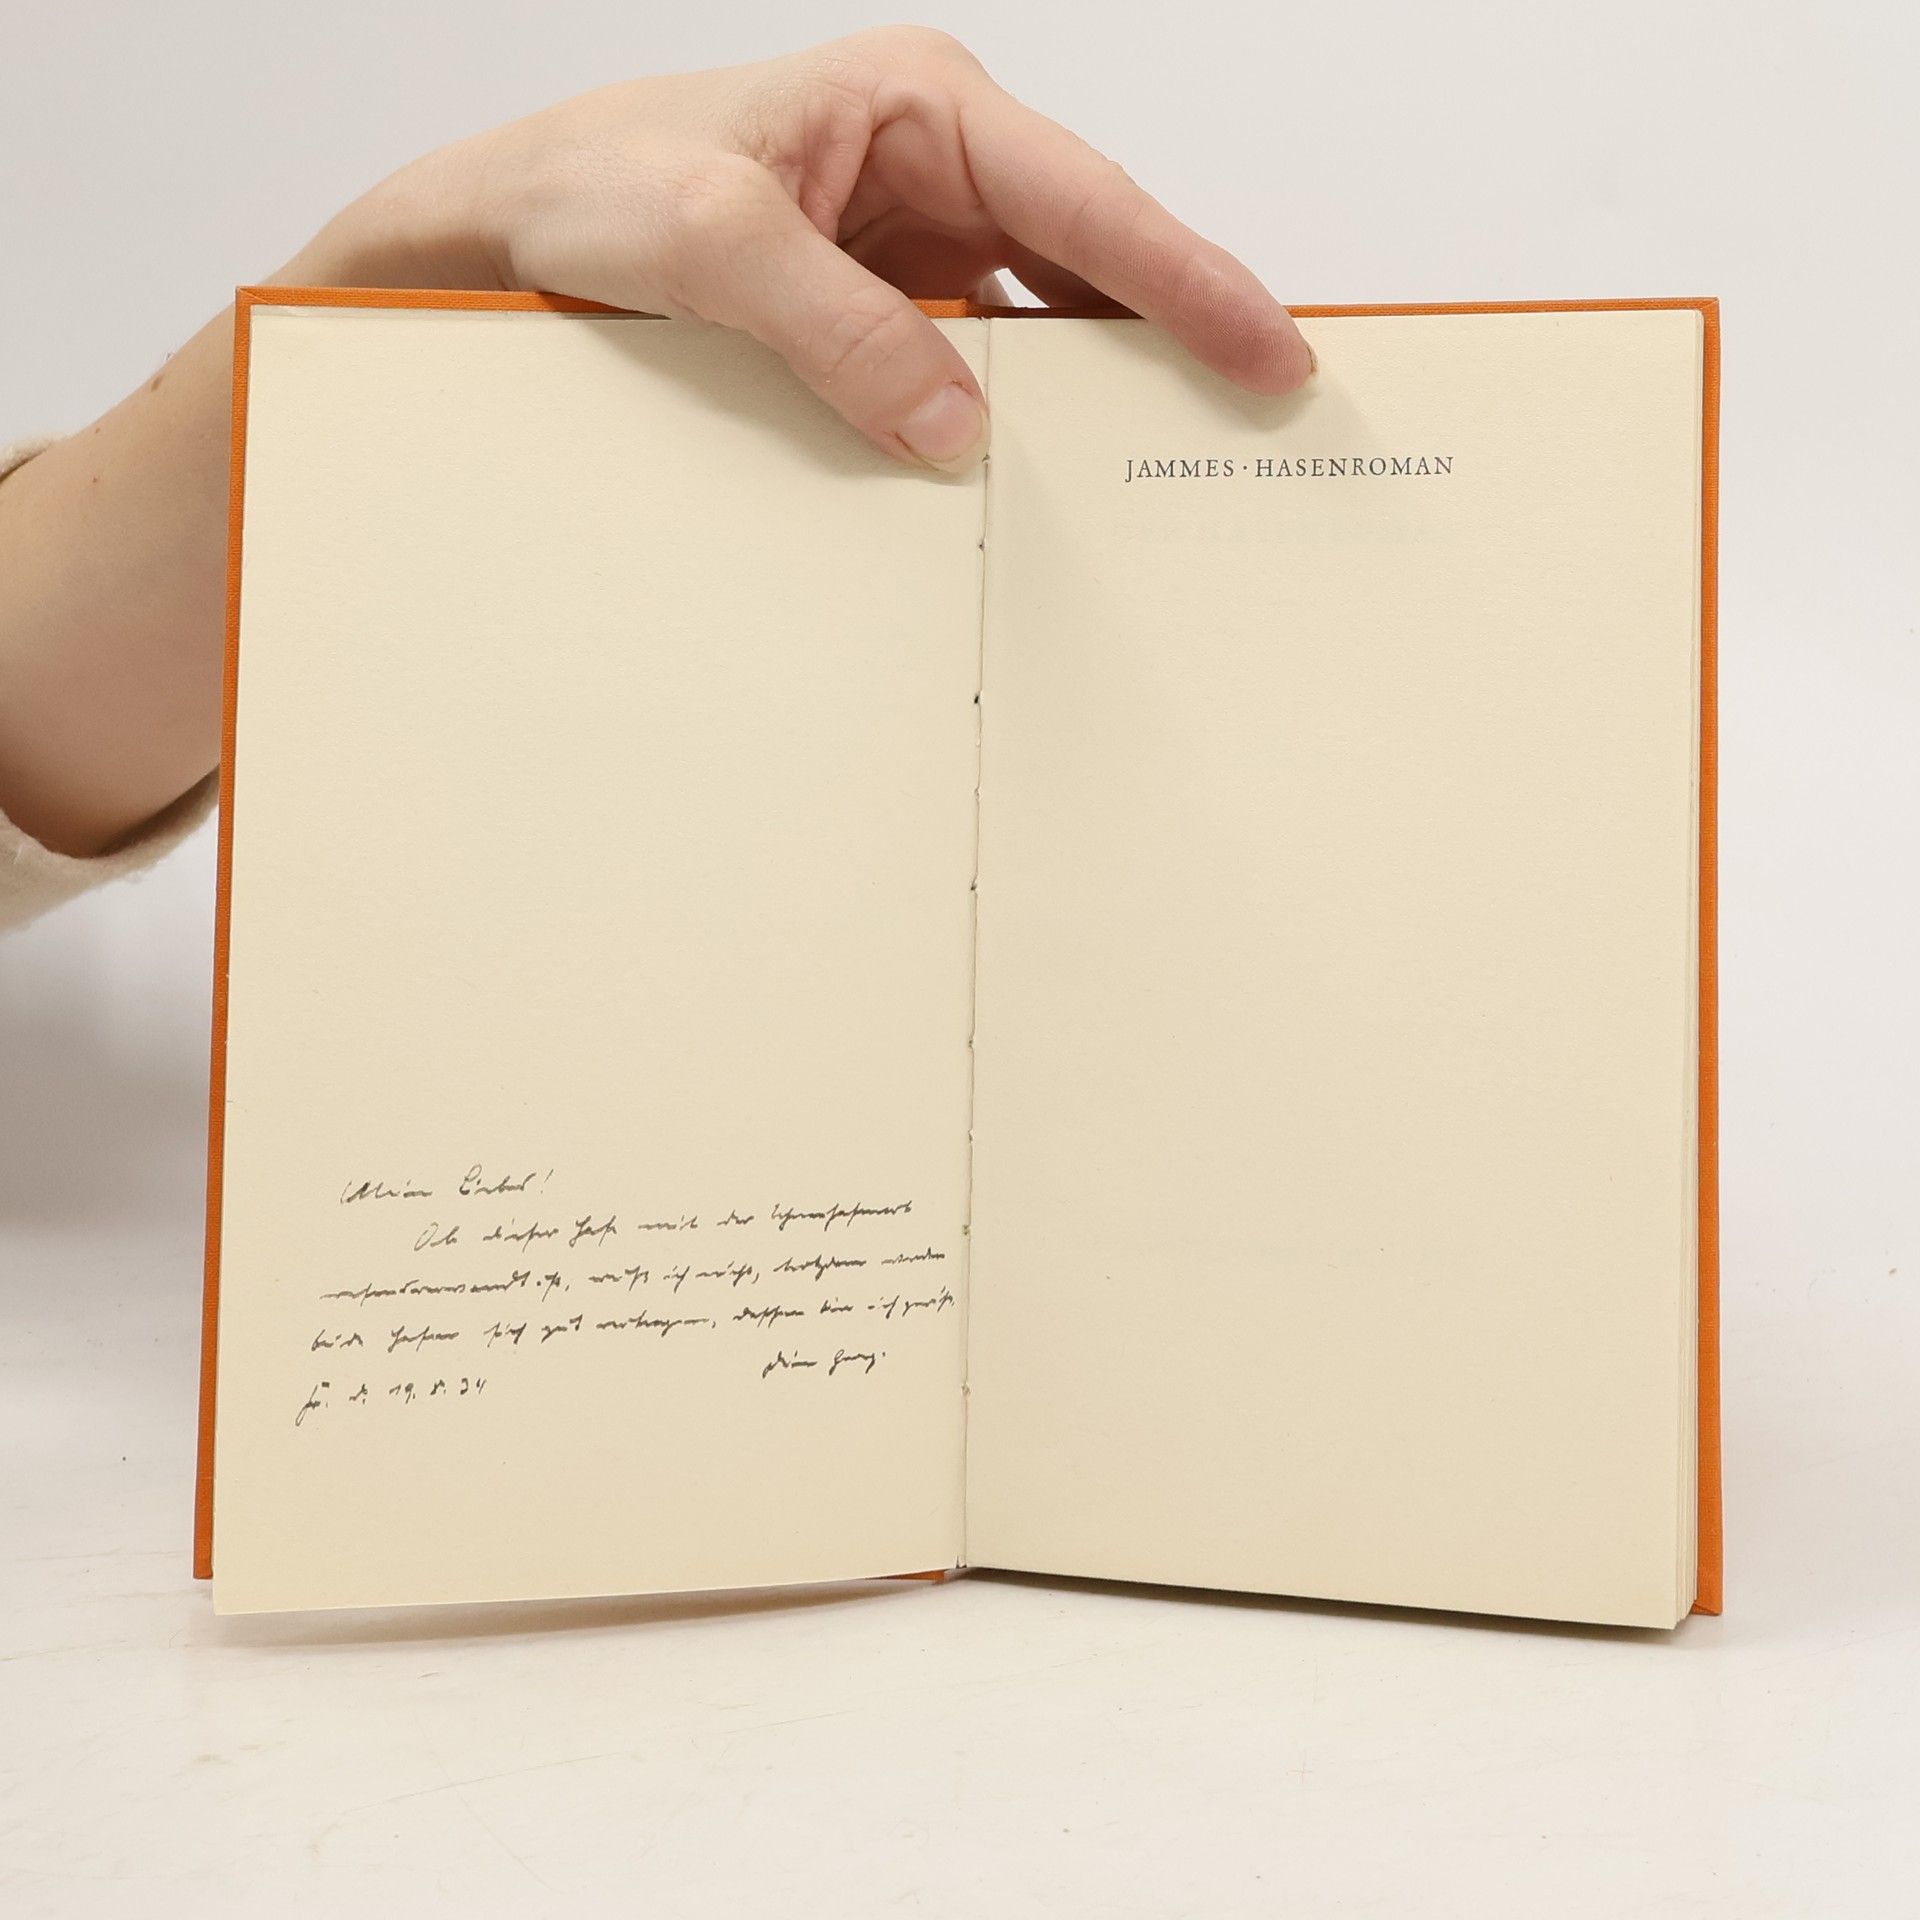 Mein Lieber!
Ob dieser Hase mit der
ist, weiß ich nicht, trotzdem werden
beide Hasen sich gut vertragen, dessen bin ich gewiß.
Dein Georg.
d. 19. 8. 34
JAMMES · HASENROMAN